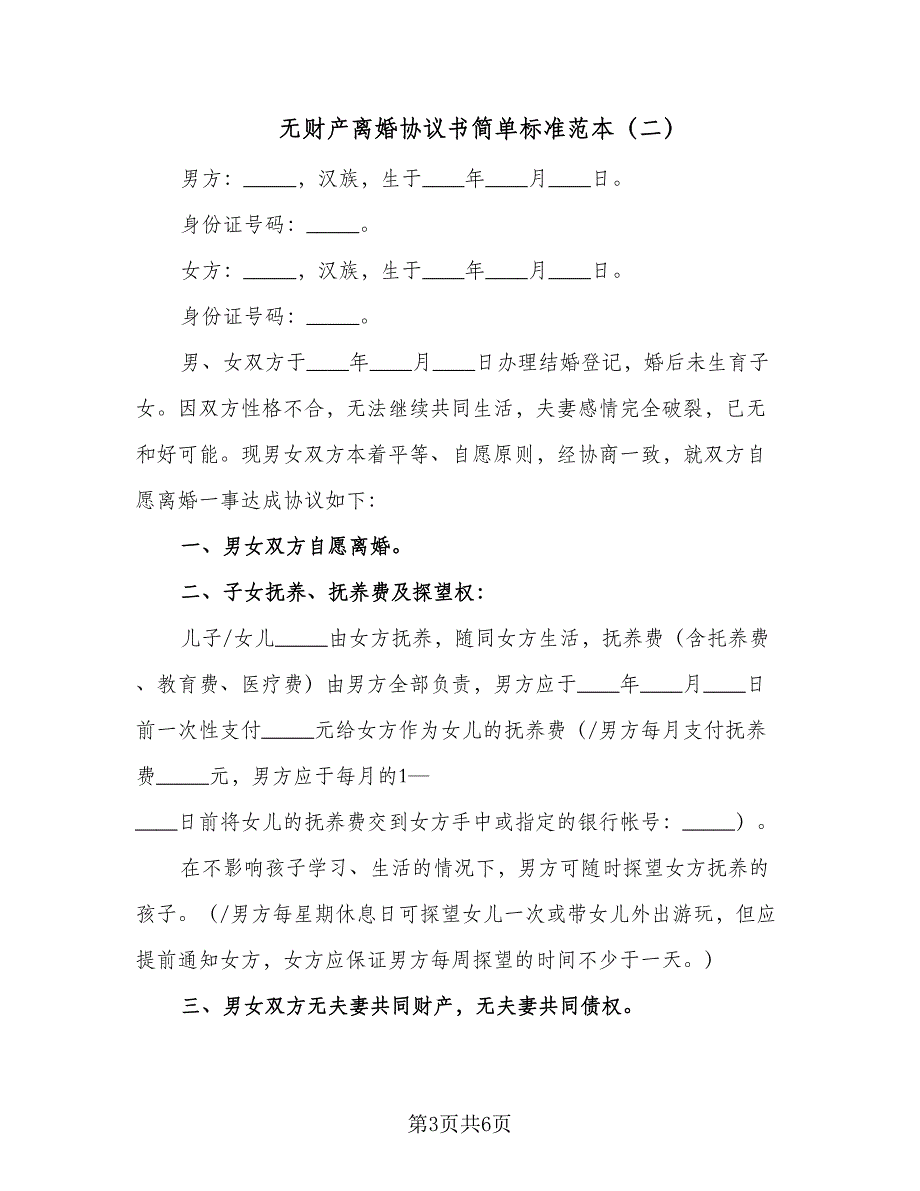 无财产离婚协议书简单标准范本（二）
男方：_____，汉族，生于____年____月____日。
身份证号码：_____。
女方：_____，汉族，生于____年____月____日。
身份证号码：_____。
男、女双方于____年____月____日办理结婚登记，婚后未生育子
女。因双方性格不合，无法继续共同生活，夫妻感情完全破裂，已无
和好可能。现男女双方本着平等、自愿原则，经协商一致，就双方自
愿离婚一事达成协议如下：
一、男女双方自愿离婚。
二、子女抚养、抚养费及探望权：
儿子/女儿_____由女方抚养，随同女方生活，抚养费（含托养费
、教育费、医疗费）由男方全部负责，男方应于____年____月____日
前一次性支付_____元给女方作为女儿的抚养费（/男方每月支付抚养
费_____元，男方应于每月的1—
____日前将女儿的抚养费交到女方手中或指定的银行帐号：_____）。
在不影响孩子学习、生活的情况下，男方可随时探望女方抚养的
孩子。（/男方每星期休息日可探望女儿一次或带女儿外出游玩，但应
提前通知女方，女方应保证男方每周探望的时间不少于一天。）
三、男女双方无夫妻共同财产，无夫妻共同债权。
第3页共6页